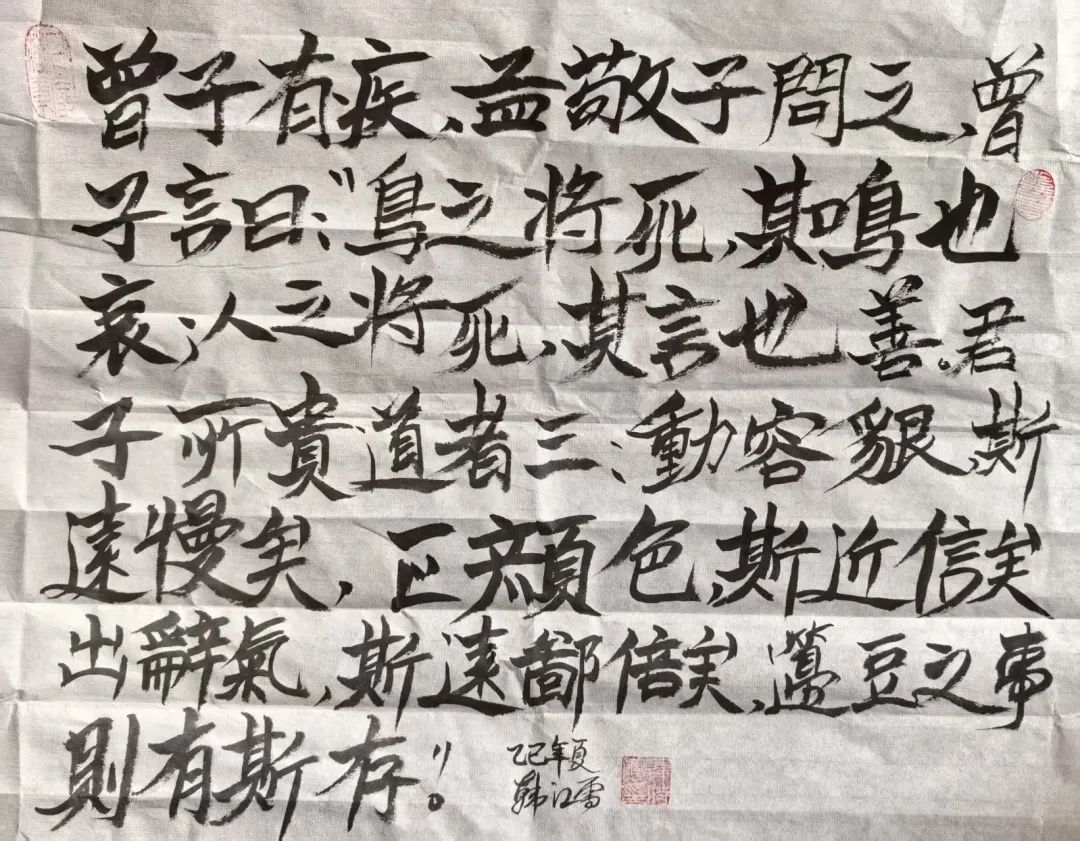 曾子有疾,孟敬子問之,曾
子言曰:"鳥之将死,其鳴也
哀;人之将死,其言也善。君
子所貴道者三:動容貌,斯
遠慢矣,正顔色,斯近信矣
出辭氣,斯遠鄙倍矣,籩豆之事
則有斯存。"
乙巳年夏
韩江雪